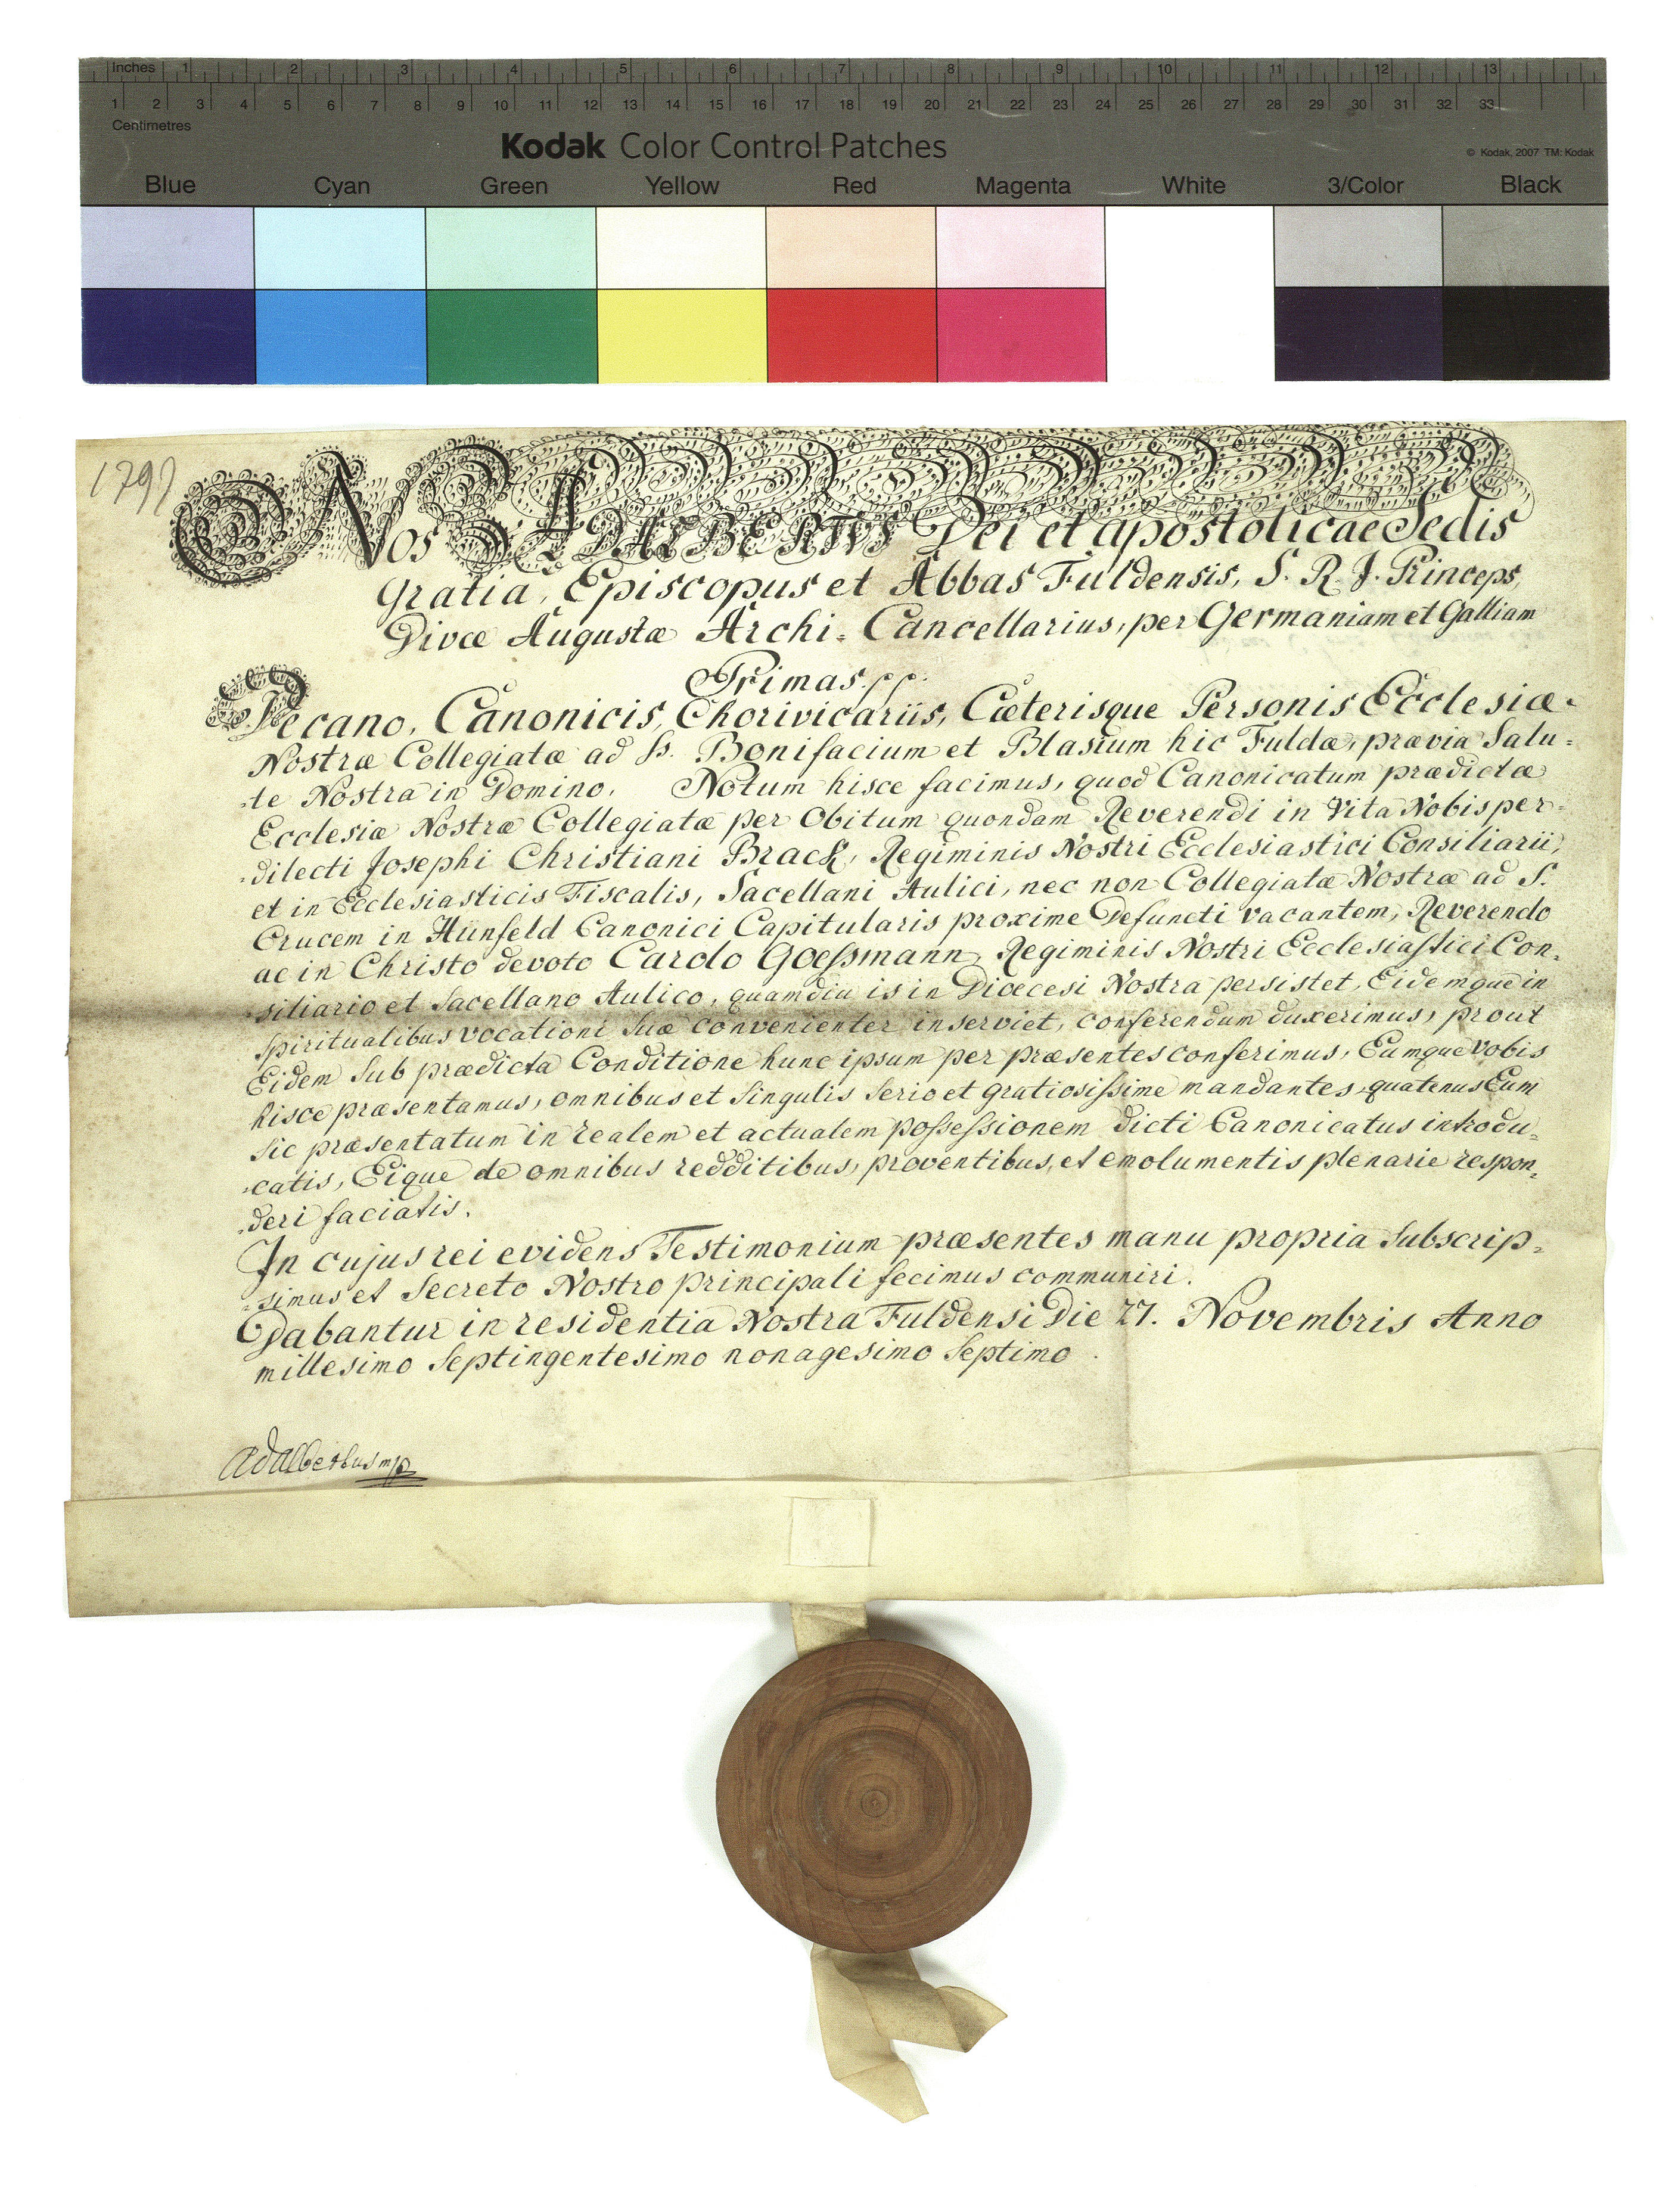 Inches 1 2 3 4 5 6 7 8 9 10 11 12 13
1 2 3 4 5 6 7 8 9 10 11 12 13 14 15 16 17 18 19 20 21 22 23 24 25 26 27 28 29 30 31 32 33
Centimetres
Kodak Color Control Patches
© Kodak, 2007 TM: Kodak
Blue Cyan Green Yellow Red Magenta White 3/Color Black
1797
Nos ADALBERTUS Dei et apostolicae Sedis
Gratia, Episcopus et Abbas Fuldensis, S. R. J. Princeps,
Divæ Augustæ Archi-Cancellarius, per Germaniam et Galliam
Primas pp.
Decano, Canonicis, Chorivicariis, Cæterisque Personis Ecclesiæ
Nostræ Collegiatæ ad Ss. Bonifacium et Blasium hic Fuldæ, prævia Salu=
=te Nostra in Domino. Notum hisce facimus, quod Canonicatum prædictæ
Ecclesiæ Nostræ Collegiatæ per Obitum quondam Reverendi in Vita Nobis per=
=dilecti Josephi Christiani Brack, Regiminis Nostri Ecclesiastici Consiliarii,
et in Ecclesiasticis Fiscalis, Sacellani Aulici, nec non Collegiatæ Nostræ ad S.
Crucem in Hünfeld Canonici Capitularis proxime Defuncti vacantem, Reverendo
ac in Christo devoto Carolo Goessmann, Regiminis Nostri Ecclesiastici Con=
=siliario et Sacellano Aulico, quamdiu is in Dioecesi Nostra persistet, Eidemque in
Spiritualibus vocationi suæ convenienter inserviet, conferendum duxerimus, prout
Eidem sub prædicta Conditione hunc ipsum per præsentes conferimus, Eumque Vobis
hisce præsentamus, omnibus et Singulis Serio et gratiosissime mandantes, quatenus Eum
sic præsentatum in realem et actualem possessionem dicti Canonicatus introdu=
=catis, Eique de omnibus redditibus, proventibus, et emolumentis plenarie respon=
=deri faciatis.
In cujus rei evidens Testimonium præsentes manu propria Subscrip=
=simus et Secreto Nostro principali fecimus communiri.
Dabantur in residentia Nostra Fuldensi Die 27. Novembris Anno
millesimo Septingentesimo nonagesimo Septimo.
Adalbertus mp